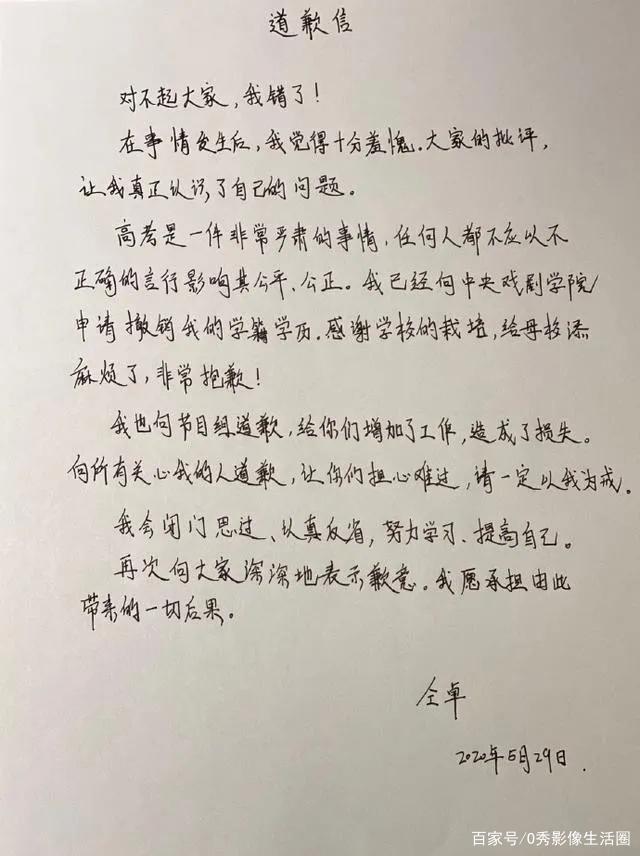 道歉信
对不起大家，我错了！
在事情发生后，我觉得十分羞愧。大家的批评，
让我真正认识了自己的问题。
高考是一件非常严肃的事情，任何人都不应以不
正确的言行影响其公平、公正。我已经向中央戏剧学院
申请撤销我的学籍学历。感谢学校的栽培，给母校添
麻烦了，非常抱歉！
我也向节目组道歉，给你们增加了工作，造成了损失。
向所有关心我的人道歉，让你们担心难过，请一定以我为戒。
我会闭门思过、认真反省，努力学习、提高自己。
再次向大家深深地表示歉意。我愿承担由此
带来的一切后果。
仝卓
2020年5月29日.
百家号/0秀影像生活圈